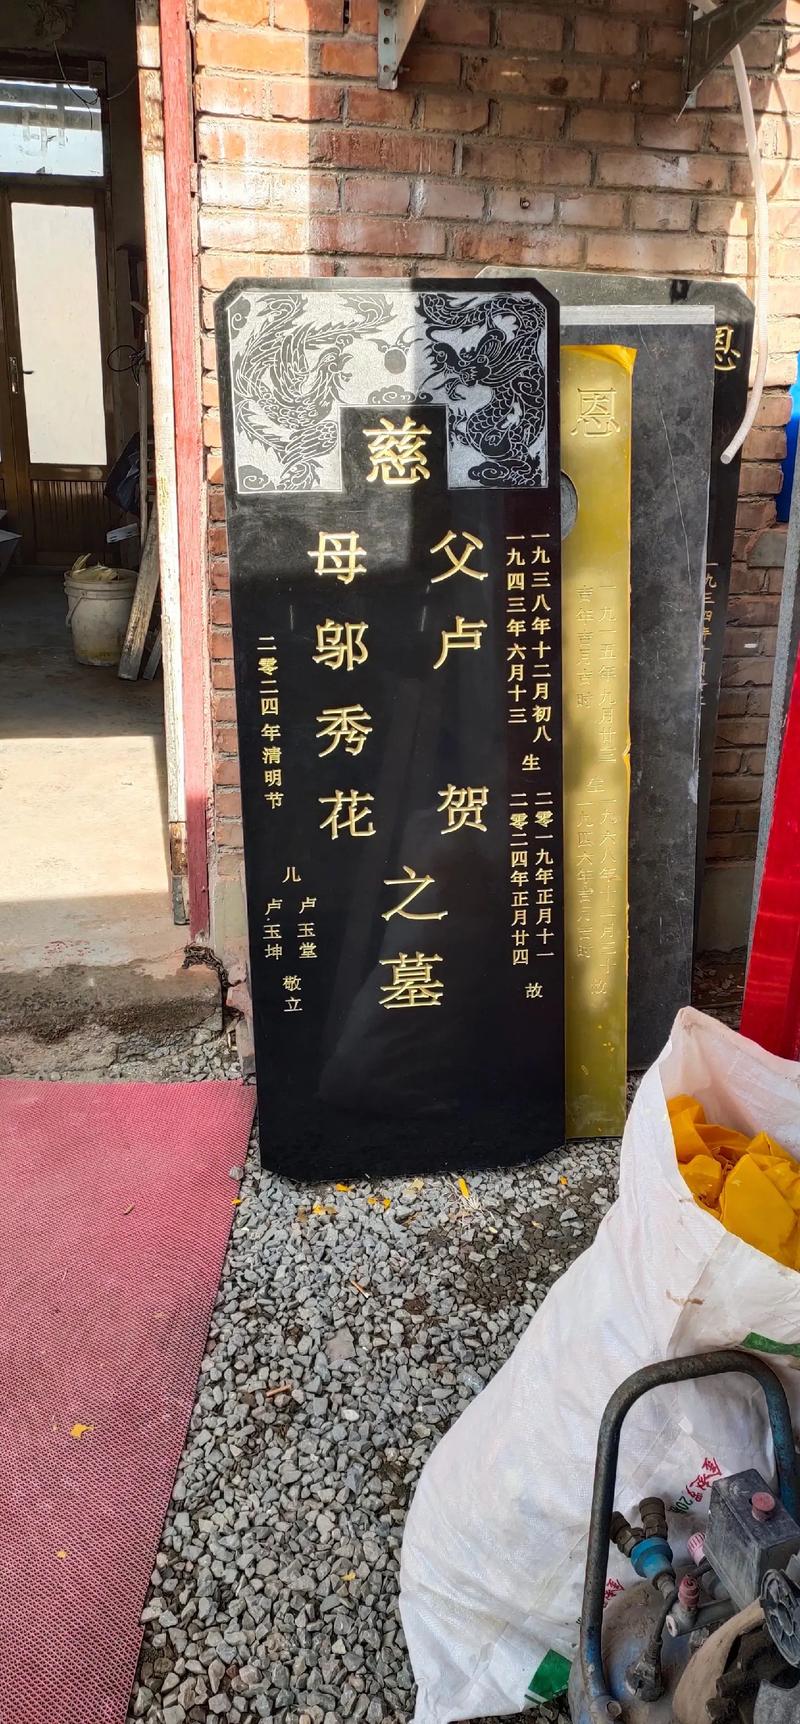 慈
一九三八年十二月初八
一九四三年六月十三
生
二零一九年正月十一
二零二四年正月廿四
故
父卢贺
母邬秀花
之墓
二零二四年清明节
儿
卢玉堂
卢玉坤
敬立
恩
一九一五年九月廿三
吉年吉月吉时
生
一九六八年十二月三十
一九四六年吉月吉时
故
恩
一九三四年